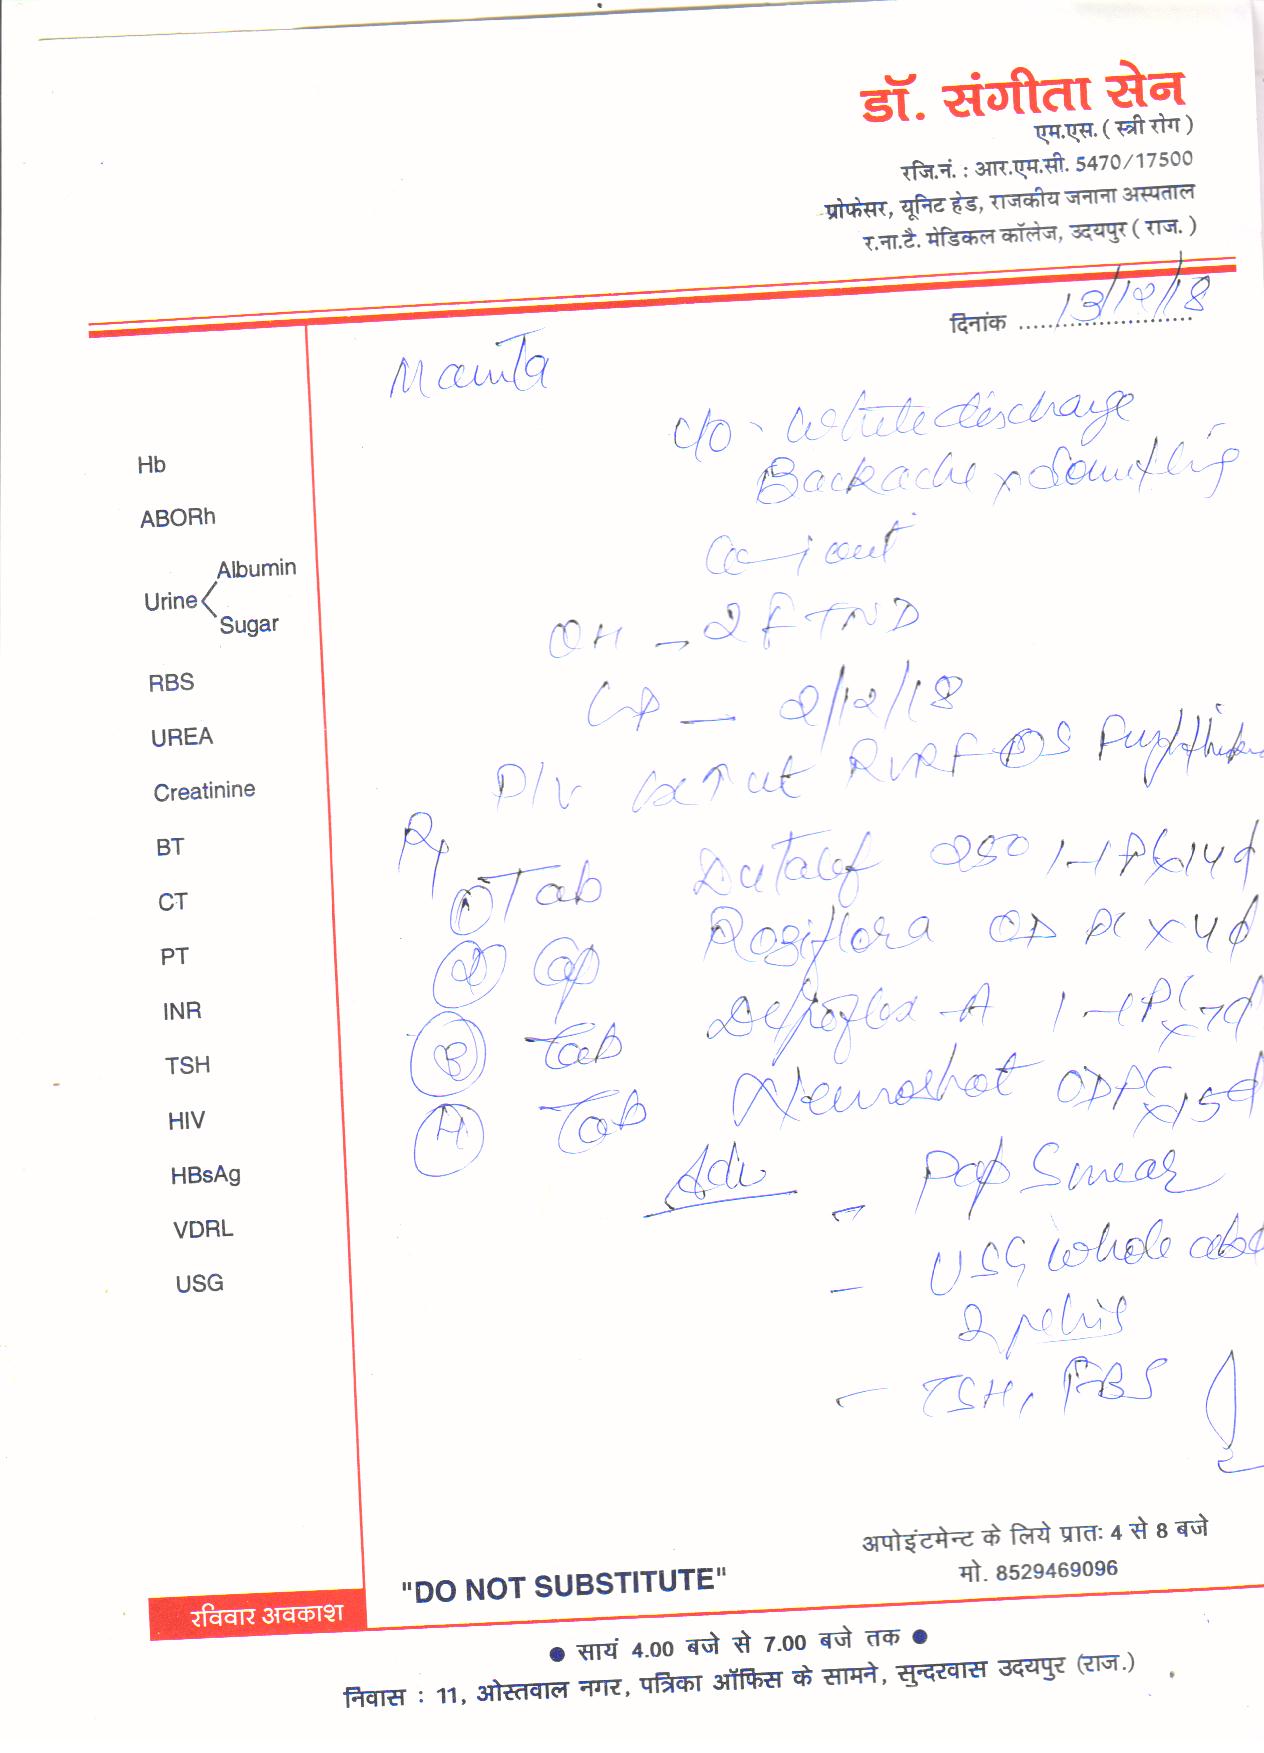 डॉ. संगीता सेन
एम.एस. ( स्त्री रोग )
रजि.नं. : आर.एम.सी. 5470/17500
प्रोफेसर, यूनिट हेड, राजकीय जनाना अस्पताल
र.ना.टै. मेडिकल कॉलेज, उदयपुर ( राज. )
दिनांक 13/12/18
Mamta
c/o - White discharge
Backache
Hb
ABORh
Urine
Albumin
Sugar
RBS
UREA
Creatinine
BT
CT
PT
INR
TSH
HIV
HBsAg
VDRL
USG
OH - 2 FTND
- 2/12/18
P/V ut RVRF OS
Rx
① Tab 250 1-1 PC x 14 d
② Cap Roziflora OD PC x 4 d
③ Tab -A 1-1 PC x 7d
④ Tab Neuroshot OD PC x 15d
Adv
- Pap Smear
- USG Whole abd
& pelvis
- TSH, RBS
अपोइंटमेन्ट के लिये प्रातः 4 से 8 बजे
मो. 8529469096
"DO NOT SUBSTITUTE"
रविवार अवकाश
● सायं 4.00 बजे से 7.00 बजे तक ●
निवास : 11, ओस्तवाल नगर, पत्रिका ऑफिस के सामने, सुन्दरवास उदयपुर (राज.)